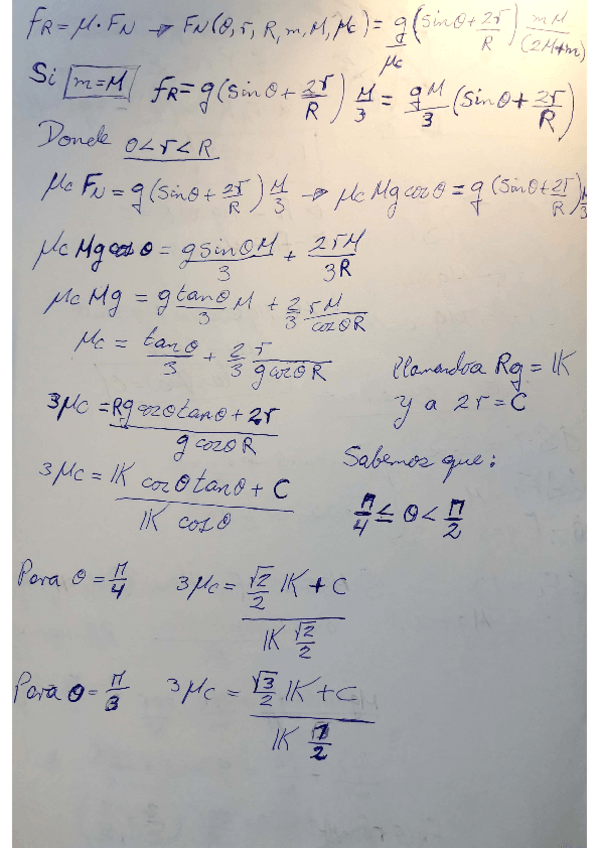 fR = μ · FN → FN(θ, r, R, m, M, μc) = g/μc (sinθ + 2r/R) mM/(2M+m)
Si m=M fR = g(sinθ + 2r/R) M/3 = gM/3 (sinθ + 2r/R)
Donde 0<r<R
μc FN = g(sinθ + 2r/R) M/3 → μc Mg cosθ = g(sinθ + 2r/R) M/3
μc Mg cosθ = g sinθ M/3 + 2rM/3R
μc Mg = g tanθ/3 M + 2/3 rM/cosθR
μc = tanθ/3 + 2/3 r/g cosθR
llamando a Rg = K
3μc = Rg cosθ tanθ + 2r/g cosθR
y a 2r = C
3μc = K cosθ tanθ + C/K cosθ
Sabemos que:
π/4 ≤ θ < π/2
Para θ = π/4 3μc = √2/2 K + C/K √2/2
Para θ = π/3 3μc = √3/2 K + C/K 1/2